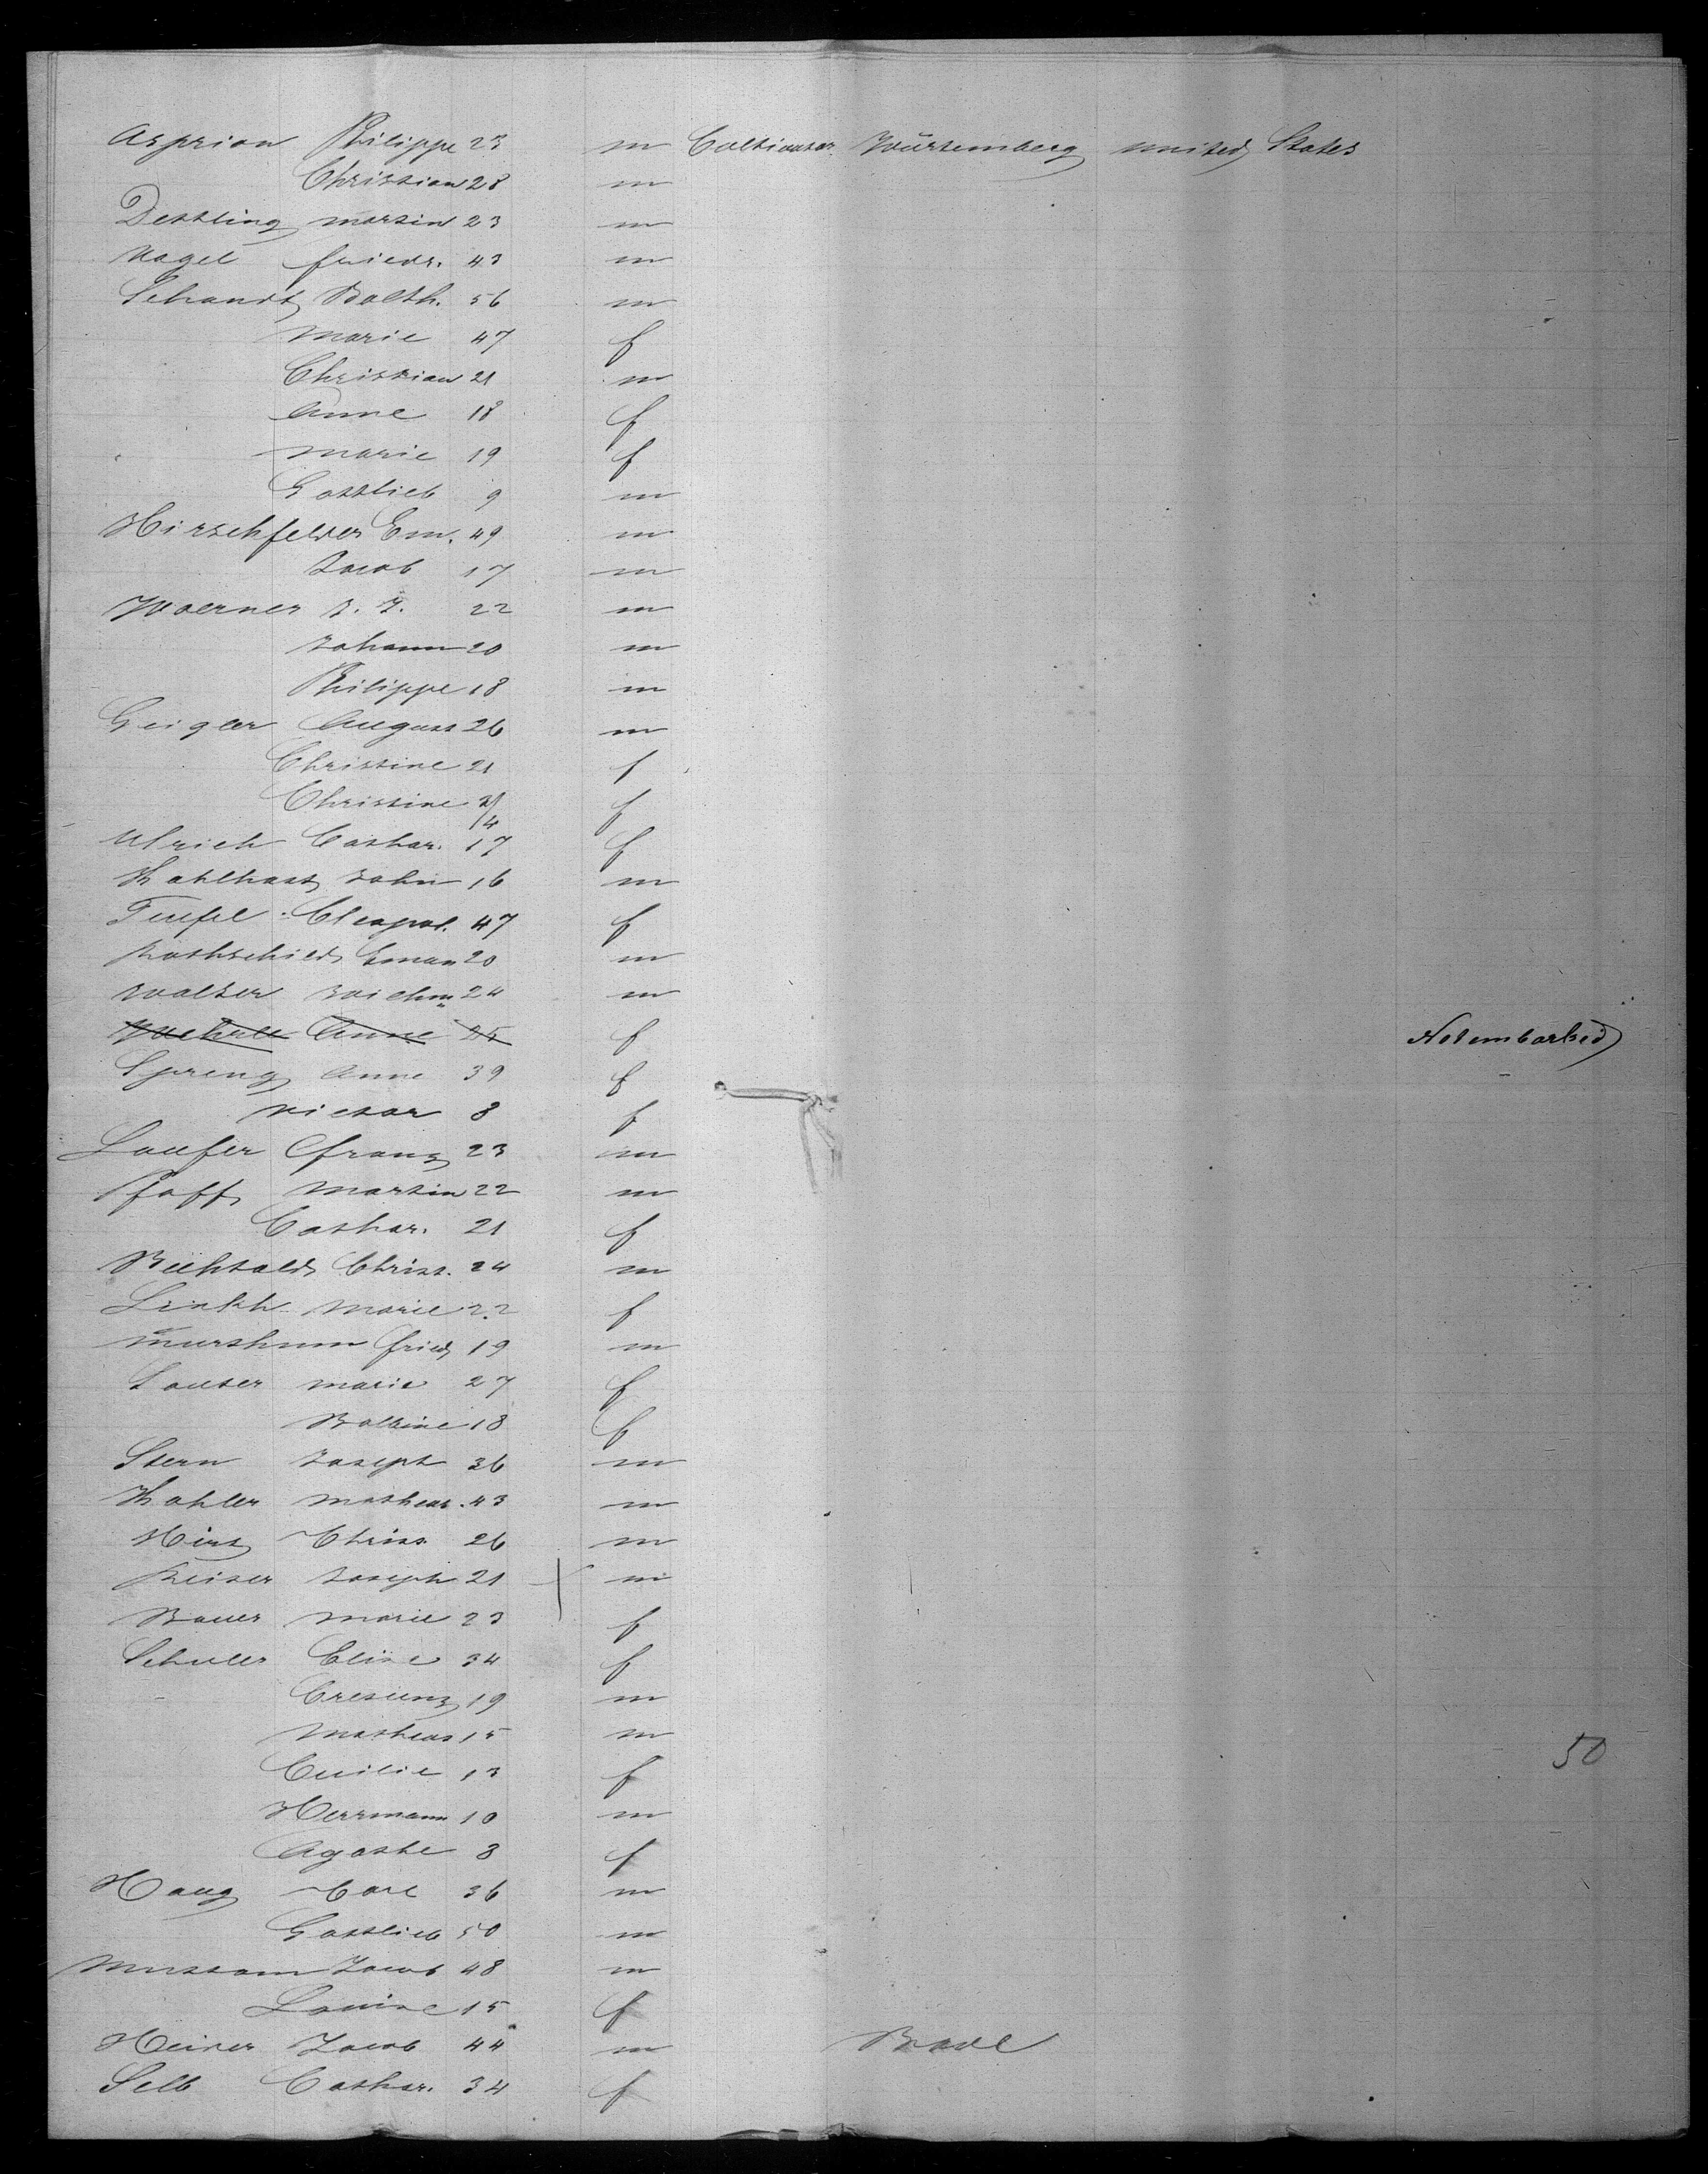 Asprion Philippe 23 m Cultivator Würtemberg united States
Christian 28 m
Dettling martin 23 m
Nagel friedr. 43 m
Schandt Balth. 56 m
Marie 47 f
Christian 21 m
Anne 18 f
Marie 19 f
Gottlieb 9 m
Hirschfelder Em. 49 m
Jacob 17 m
Woerner J. F. 22 m
Johann 20 m
Philippe 18 m
Geigler August 26 m
Christine 21 f
Christine 3/4 f
Ulrich Cathar. 17 f
Kohlhast John 16 m
Teufel Cleopat. 47 f
Rothschild Eman 20 m
Walter Wichm 24 m
Anne 25 f Not embarked
Spreng Anne 39 f
Victor 8 f
Laufer Franz 23 m
Pfaff Martin 22 m
Cathar. 21 f
Christ. 24 m
Marie 22 f
Murshum Fried 19 m
Lauter marie 27 f
Balbine 18 f
Stern Joseph 36 m
Kohler Matheas. 43 m
Hirt Christ 26 m
Reiser Joseph 21 m
Bauer Marie 23 f
Schuler Elise 34 f
Cresenz 19 m
Matheas 15 m
Cecilie 13 f 50
Herrmann 10 m
Agathe 8 f
Haug Carl 36 m
Gottlieb 50 m
Jacob 48 m
Louise 15 f
Jacob 44 m Bade
Selb Cathar. 34 f